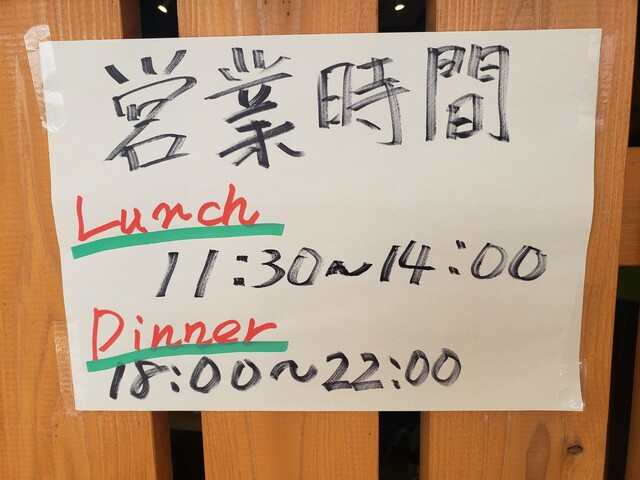 営業時間
Lunch
11:30〜14:00
Dinner
18:00〜22:00